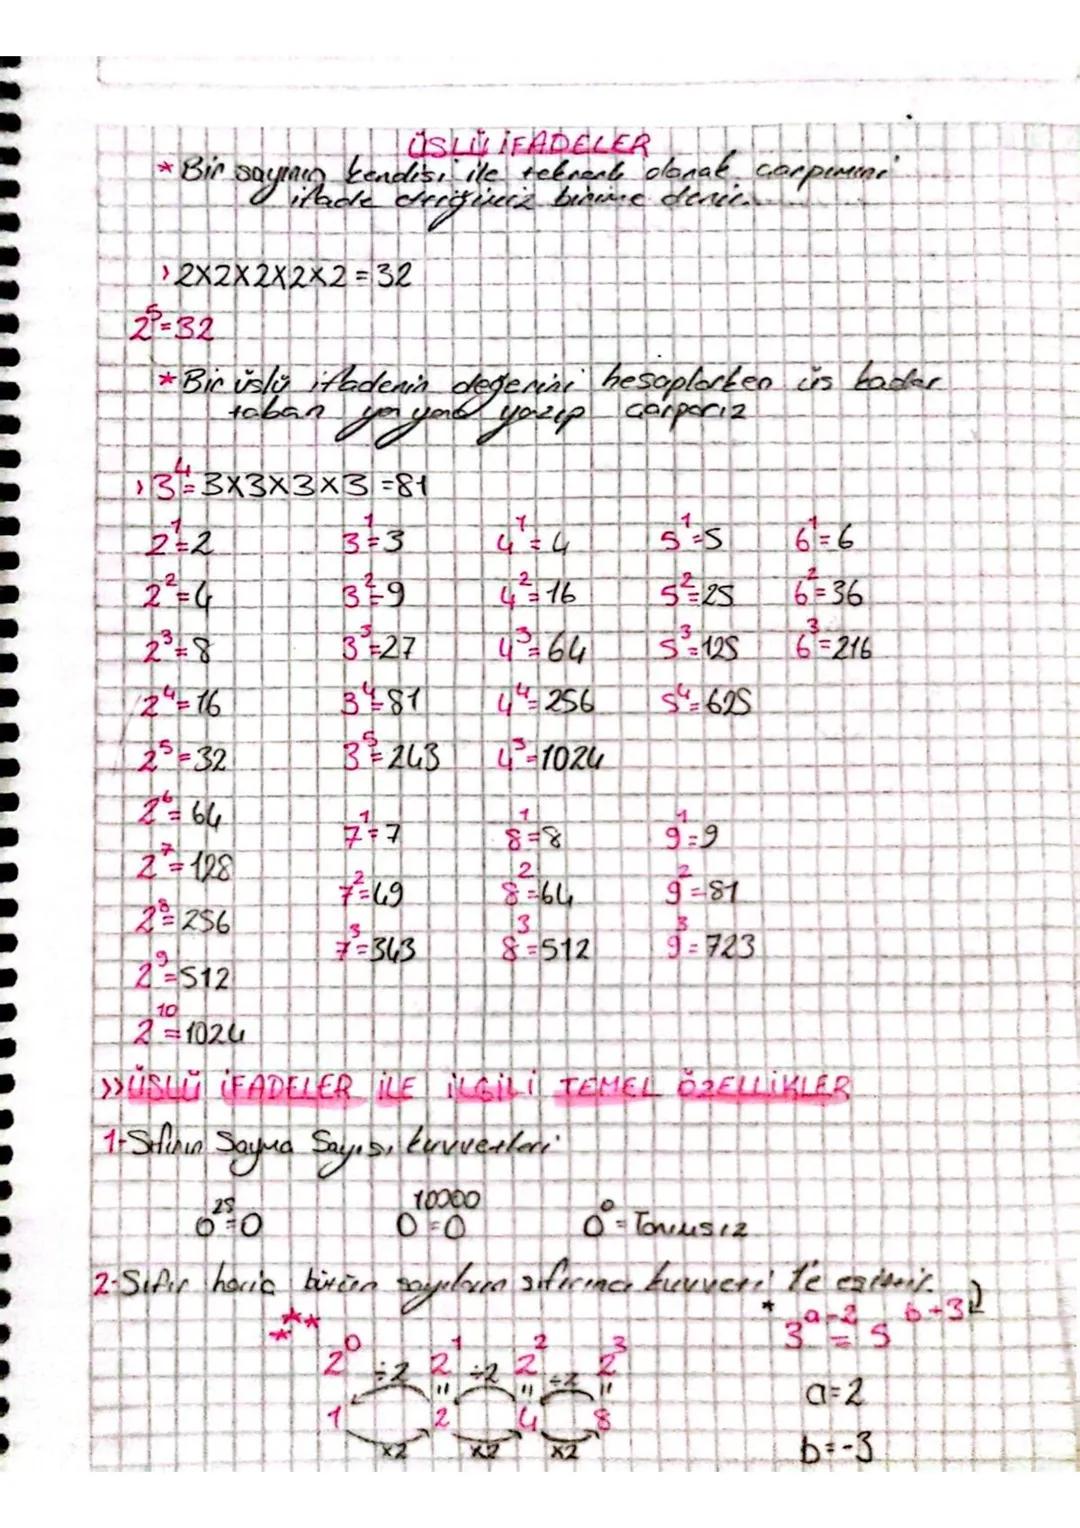 ÜSLÜ İFADELER
* Bir sayının kendisi ile tekrarlı olarak çarpımını
ifade ettiğimiz birime denir.
› 2x2x2x2x2 = 32
2⁵=32
* Bir üslü ifadenin değerini hesaplarken üs kadar
taban yan yana yazıp çarparız
› 3⁴=3x3x3x3=81
2¹=2 3¹=3 4¹=4 5¹=5 6¹=6
2²=4 3²=9 4²=16 5²=25 6²=36
2³=8 3³=27 4³=64 5³=125 6³=216
2⁴=16 3⁴=81 4⁴=256 5⁴=625
2⁵=32 3⁵=243 4⁵=1024
2⁶=64
7¹=7 8¹=8 9¹=9
2⁷=128
7²=49 8²=64 9²=81
2⁸=256
7³=343 8³=512 9³=723
2⁹=512
2¹⁰=1024
»ÜSLÜ İFADELER İLE İLGİLİ TEMEL ÖZELLİKLER
1-Sıfırın Sayma Sayısı kuvvetleri
0²⁵=0 0¹⁰⁰⁰⁰=0 0⁰=Tanımsız
2-Sıfır hariç bütün sayıların sıfırıncı kuvveti 1'e eşittir.
*** * 3ᵃ⁻²=5ᵇ⁺³
2⁰ ÷2 2¹ ÷2 2² ÷2 2³
= = =
a=2
1 2 4 8
x2 x2 x2
b=-3